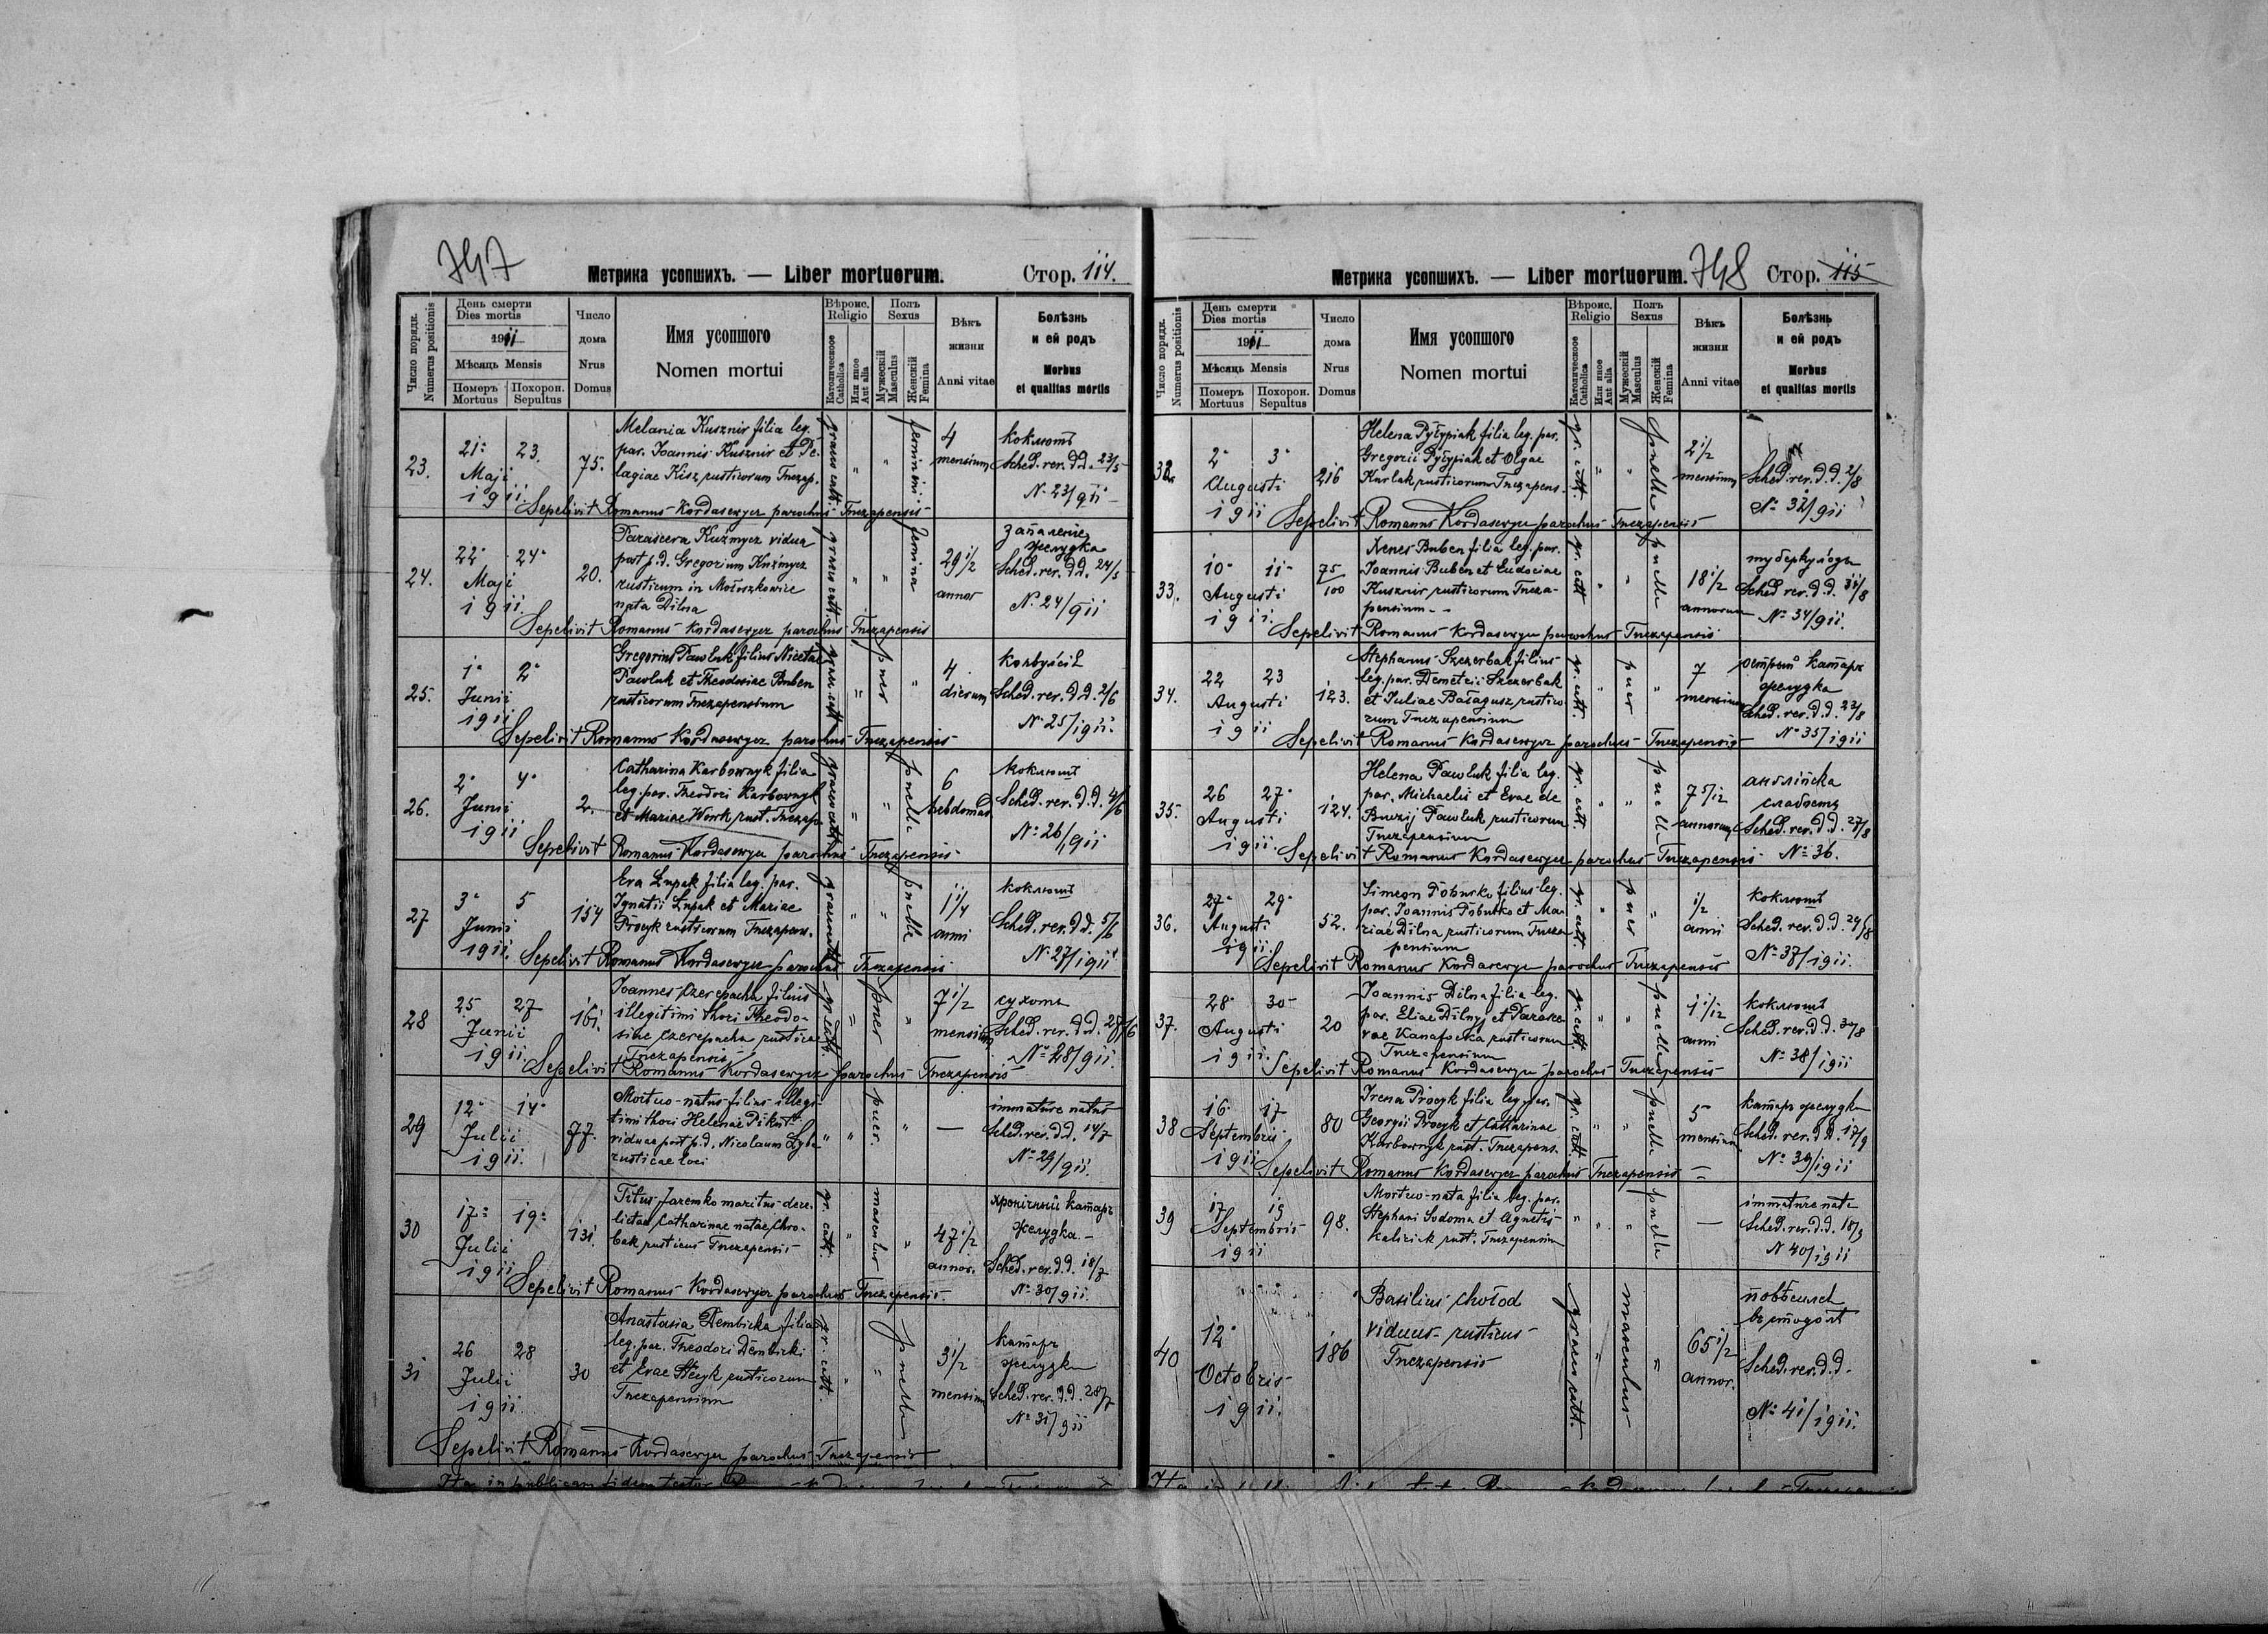 747
Метрика усопшихъ. — Liber mortuorum.
Стор. 114.
Число порядк.
Numerus positionis
День смерти
Dies mortis
1911
Мѣсяць Mensis
Померъ
Mortuus
Похорон.
Sepultus
Число
дома
Nrus
Domus
Имя усопшого
Nomen mortui
Вѣроис.
Religio
Католическоое
Catholica
Или иное
Aut alia
Полъ
Sexus
Мужескій
Masculus
Женскій
Femina
Вѣкъ
жизни
Anni vitae
Болѣзнь
и ей родъ
Morbus
et qualitas mortis
23.
21 23.
Maji
1911
75.
Melania Kusznir filia leg.
par. Joannis Kusznir et Pe-
lagiae Kisz rusticorum Tnezap.
graeco catt.
feminini
4
mensium
коклюшъ
Sched. rev. d.d. 23/5
N. 23/911
Sepelivit Romanus Kordasewycz parochus Tnezapensis
24.
22 24
Maji
1911.
20.
Parascera Kuźmycz vidua
post p.d. Gregorium Kuźmycz
rusticum in Mołoszkowice
nata Dilna
graeco catt.
femina
29 1/2
annor
запаленіе
желудка
Sched. rev. d.d. 24/5
No. 24/911
Sepelivit Romanus Kordasewycz parochus Tnezapensis
25.
1 2
Junii
1911
Gregorius Pawluk filius Nicetae
Pawluk et Theodosiae Buben
rusticorum Tnezapensium
graeco catt.
puer
4
dierum
Sched. rev. d.d. 2/6
No 25/1911.
Sepelivit Romanus Kordasewycz parochus Tnezapensis
26.
2 4
Junii
1911
2.
Catharina Karbownyk filia
leg. par. Theodori Karbownyk
et Mariae Wowk rust. Tnezap.
graeco catt.
puella
6
hebdomad
коклюшъ
Sched. rev. d.d. 4/6
No 26/911
Sepelivit Romanus Kordasewycz parochus Tnezapensis
27
3 5
Junii
1911.
154
Eva Łupak filia leg. par.
Ignatii Łupak et Mariae
Procyk rusticorum Tnezapens.
graeco catt.
puella
1 1/4
anni
коклюшъ
Sched. rev. d.d. 5/6
No 27/1911
Sepelivit Romanus Kordasewycz parochus Tnezapensis
28
25 27
Junii
1911.
161.
Joannes Czerepacha filius
illegitimi thori Theodo-
siae Czerepacha rusticae
Tnezapensis
gr. catt.
puer
7 1/2
mensium
сухоты
Sched. rev. d.d. 27/6
No 28/911.
Sepelivit Romanus Kordasewycz parochus Tnezapensis
29
12 14
Julii
1911.
77.
Mortuo-natus filius illegi-
timi thori Helenae Pikuś
viduae post p.d. Nicolaum Łyba
rusticae loci
puer.
—
immature natus
Sched. rev. d.d. 14/7
No 29/911.
30
17 19
Julii
1911
131.
Titus Jaremko maritus dere-
lictae Catharinae natae Chro-
bak rusticus Tnezapensis
gr. catt.
masculus
47 1/2
annor.
хронічный катаръ
желудка
Sched. rev. d.d. 18/7
No 30/911.
Sepelivit Romanus Kordasewycz parochus Tnezapensis.
31
26 28
Julii
1911.
30
Anastasia Dembicka filia
leg. par. Theodori Dembicki
et Evae Hcyk rusticorum
Tnezapensium
gr. catt.
puella
3 1/2
mensium
катаръ
желудка
Sched. rev. d.d. 28/7
No 31/911
Sepelivit Romanus Kordasewycz parochus Tnezapensis
Ita in publicam fidem testor
748
Метрика усопшихъ. — Liber mortuorum.
Стор. 115
Число порядк.
Numerus positionis
День смерти
Dies mortis
1911
Мѣсяць Mensis
Померъ
Mortuus
Похорон.
Sepultus
Число
дома
Nrus
Domus
Имя усопшого
Nomen mortui
Вѣроис.
Religio
Католическоое
Catholica
Или иное
Aut alia
Полъ
Sexus
Мужескій
Masculus
Женскій
Femina
Вѣкъ
жизни
Anni vitae
Болѣзнь
и ей родъ
Morbus
et qualitas mortis
32
2 3
Augusti
1911
216
Helena Pyłypiak filia leg. par.
Gregorii Pyłypiak et Olgae
Kurlak rusticorum Tnezapens.
gr. catt.
puella
2 1/2
mensium
Sched. rev. d.d. 2/8
No 32/911
Sepelivit Romanus Kordasewycz parochus Tnezapensis
33.
10 11
Augusti
1911.
75
100
Xenes Buben filia leg. par.
Joannis Buben et Eudociae
Kusznir rusticorum Tneza-
pensium
gr. catt
puella
18 1/2
annorum
туберкулозъ
Sched rev. d.d. 11/8
No 34/911.
Sepelivit Romanus Kordasewycz parochus Tnezapensis
34.
22 23
Augusti
1911
123.
Stephanus Szczerbak filius
leg. par. Demetrii Szczerbak
et Juliae Bałagusz rustico-
rum Tnezapensium
gr. catt.
puer
7
mensium
острый катаръ
желудка
Sched. rev. d.d. 23/8
No 35/1911
Sepelivit Romanus Kordasewycz parochus Tnezapensis
35.
26 27
Augusti
1911.
124.
Helena Pawluk filia leg.
par. Michaelis et Evae de
Buczij Pawluk rusticorum
Tnezapensium
gr. catt.
puella
7 5/12
annorum
англійска
слабость
Sched. rev. d.d. 27/8
No 36.
Sepelivit Romanus Kordasewycz parochus Tnezapensis
36.
27 29
Augusti
1911.
52.
Simeon Poburko filius leg.
par. Joannis Poburko et Ma-
riae Dilna rusticorum Tneza-
pensium
gr. catt
puer
1/2
anni
коклюшъ
Sched. rev. d.d. 29/8
No 37/1911.
Sepelivit Romanus Kordasewycz parochus Tnezapensis
37.
28 30
Augusti
1911.
20
Joannis Dilna filia leg.
par. Eliae Dilnyj et Parasce-
vae Kanafocka rusticorum
Tnezapensium
gr. catt.
puella
1 1/12
anni
коклюшъ
Sched. rev. d.d. 30/8
No 38/1911
Sepelivit Romanus Kordasewycz parochus Tnezapensis
38
16 17
Septembris
1911
80
Irena Procyk filia leg. par.
Georgii Procyk et Catharinae
Karbownyk rust. Tnezapens.
gr. catt.
puella
5
mensium
катаръ желудка
Sched. rev. d.d. 17/9
No 39/1911
Sepelivit Romanus Kordasewycz parochus Tnezapensis
39
17 19
Septembris
1911
98.
Mortuo-nata filia leg. par.
Stephani Sodoma et Agnetis
Kaliciak rust. Tnezapensium
puella
—
immature nata
Sched. rev. d.d. 18/9
N 40/1911
40
12
Octobris
1911.
186
Basilius Chołod
viduus rusticus
Tnezapensis
graeco catt.
masculus
65 1/2
annor.
повѣсился
Sched. rev. d.d.
No 41/1911.
Ita